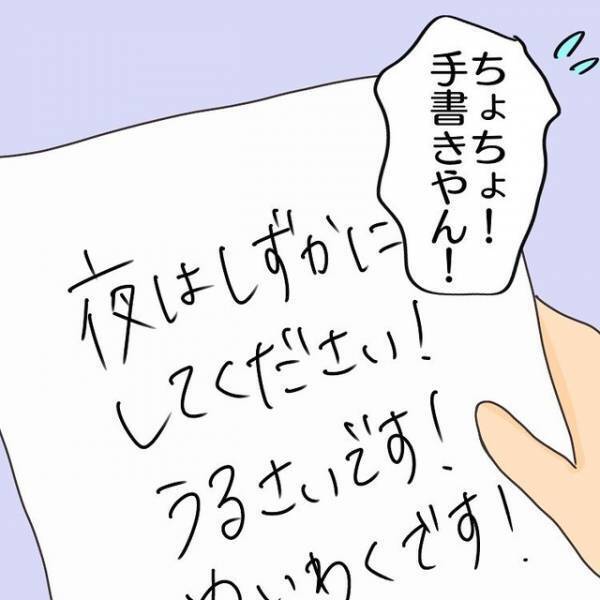 ちょちょ！
手書きやん！
夜はしずかに
してください！
うるさいです！
めいわくです！